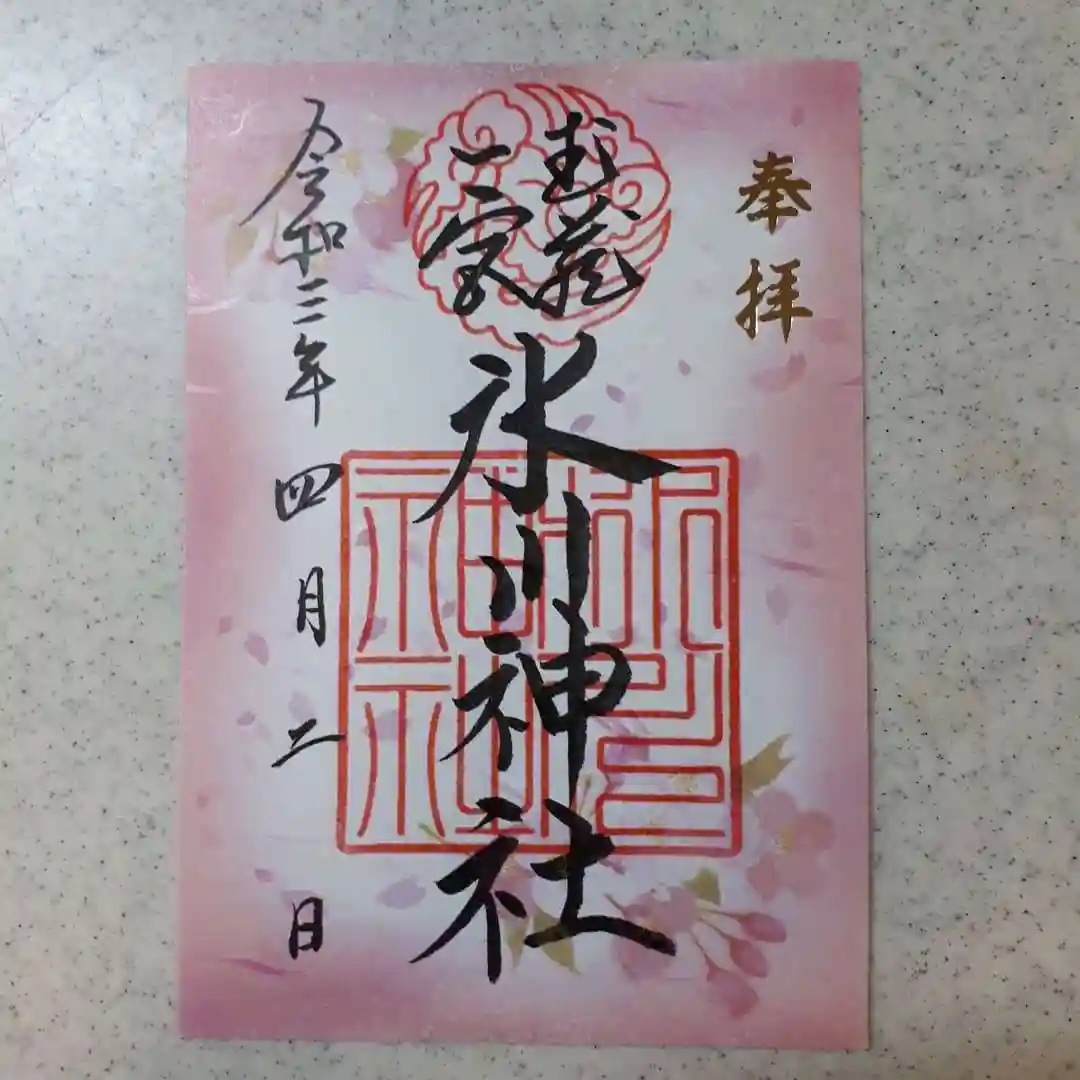 奉拝
武蔵
一宮
氷川神社
氷川
神社
令和三年四月二日